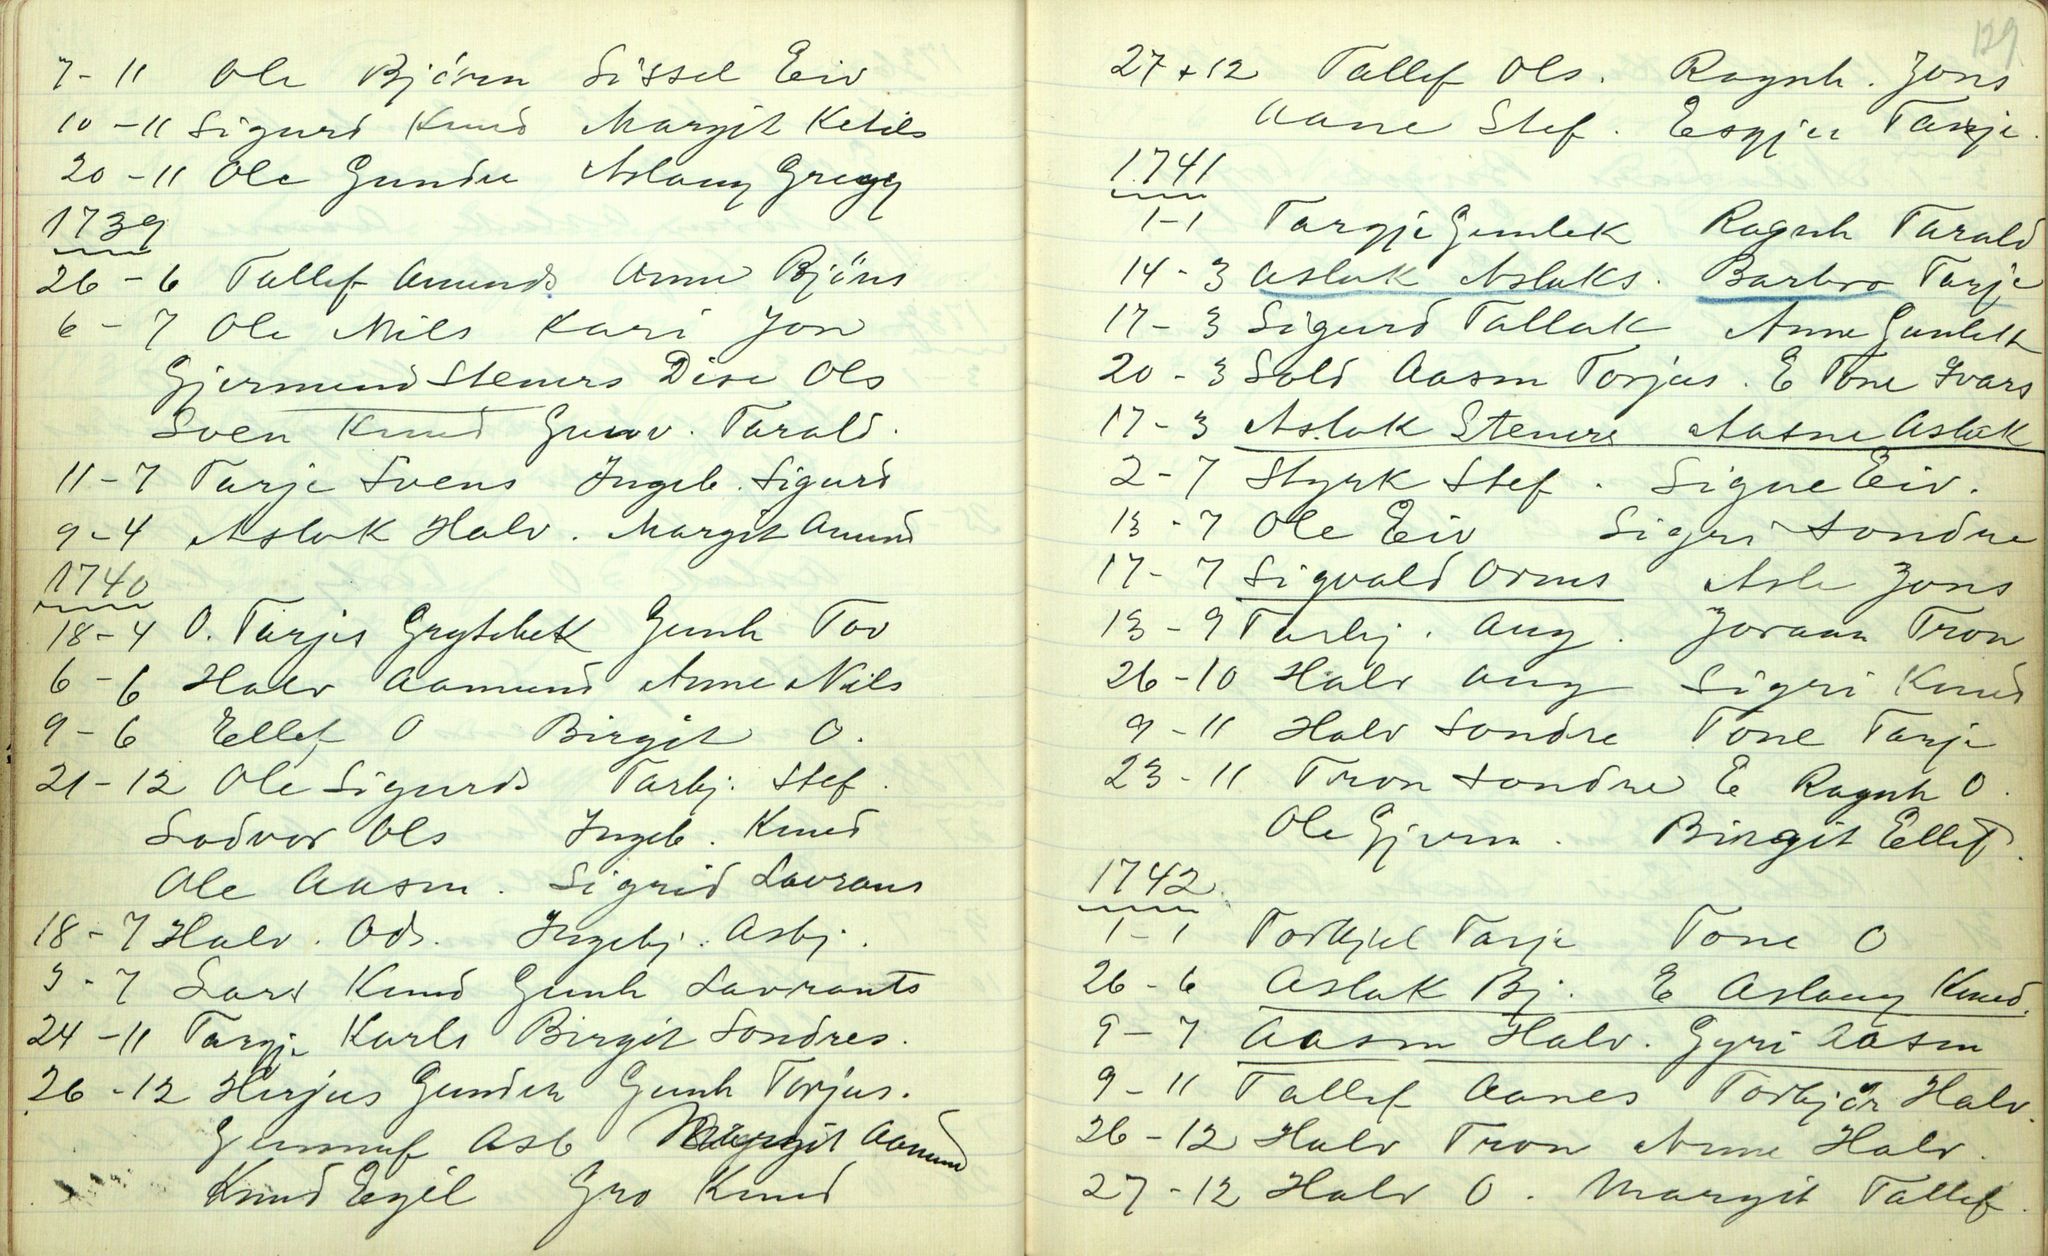 7-11 Ole Bjørn Sissel Eiv
10-11 Sigurd Knud Margit Ketils
20-11 Ole Gunder Aslaug Gregg
1739
26-6 Tallef Amunds Anne Bjöns
6-7 Ole Nils Kari Jon
Gjermund Steners Dise Ols
Sven Knud Gunv. Tarald.
11-7 Tarje Svens Ingeb. Sigurd
9-4 Aslak Halv. Margit Amund
1740
18-4 O. Tarjes Grytebek Gunh Tov
6-6 Halv Aamund Anne Nils
9-6 Ellef O Birgit O.
21-12 Ole Sigurds Tarbj. Stef.
Sodvor Ols Ingeb. Knud
Ole Aasm. Sigrid Lavrans
18-7 Halv. Ods. Ingebj. Asbj.
3-7 Lars Knud Gunh Lavrants
24-11 Targje Karls Birgit Sondres.
26-12 Herjus Gunder Gunh Torjus.
Gunnuf Asb Margit Aamund
Knud Egil Gro Knud
129
27+12 Tallef Ols. Ragnh. Jons
Aane Stef. Esgjer Tarje.
1741
1-1 Targje Gunlek Ragnh Tarald
14-3 Aslak Aslaks. Barbro Tarje
17-3 Sigurd Tallak Anne Gunlek
20-3 Sold Aasm Torjus. E Tone Ivars
17-3 Aslak Steners Aasne Aslak
2-7 Styrk Stef. Signe Eiv.
13-7 Ole Eiv Sigri Sondre
17-7 Sigvald Orms Asle Jons
13-9 Tarbj. Aug. Joraan Tron
26-10 Halv Aug Sigri Knud
9-11 Halv Sondre Tone Tarje
23-11 Tron Sondre E Ragnh O.
Ole Gjerm. Birgit Ellef.
1742
1-1 Torkjel Tarje Tone O
26-6 Aslak Bj. E Aslaug Knud.
9-7 Aasm Halv. Gyri Aasm
9-11 Tallef Aanes Torbjør Halv.
26-12 Halv Tron Anne Halv.
27-12 Halv O. Margit Tallef.